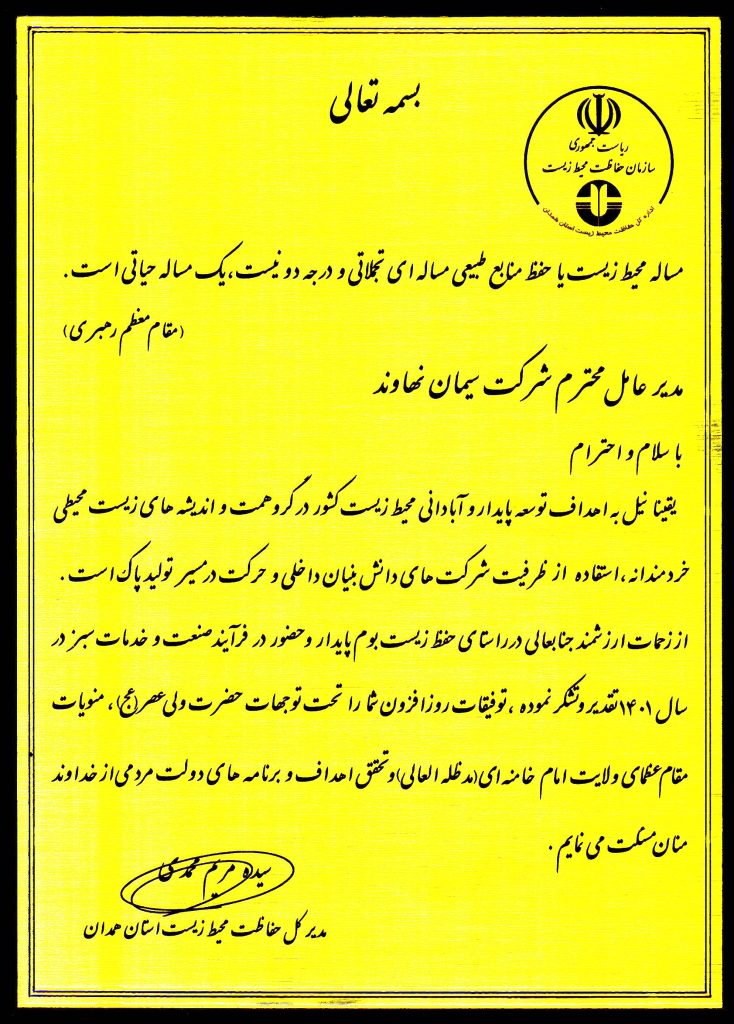 بسمه تعالی
ریاست جمهوری
سازمان حفاظت محیط زیست
اداره کل حفاظت محیط زیست استان همدان
مساله محیط زیست یا حفظ منابع طبیعی مساله ای تجملاتی و درجه دو نیست، یک مساله حیاتی است.
(مقام معظم رهبری)
مدیر عامل محترم شرکت سیمان نهاوند
با سلام و احترام
یقینا نیل به اهداف توسعه پایدار و آبادانی محیط زیست کشور در گرو همت و اندیشه های زیست محیطی
خردمندانه، استفاده از ظرفیت شرکت های دانش بنیان داخلی و حرکت در مسیر تولید پاک است.
از زحمات ارزشمند جنابعالی در راستای حفظ زیست بوم پایدار و حضور در فرآیند صنعت و خدمات سبز در
سال ۱۴۰۱ تقدیر و تشکر نموده، توفیقات روزافزون شما را تحت توجهات حضرت ولی عصر(عج)، منویات
مقام عظمای ولایت امام خامنه ای(مدظله العالی) و تحقق اهداف و برنامه های دولت مردمی از خداوند
منان مسئلت می نمایم.
سیده مریم محمدی
مدیر کل حفاظت محیط زیست استان همدان